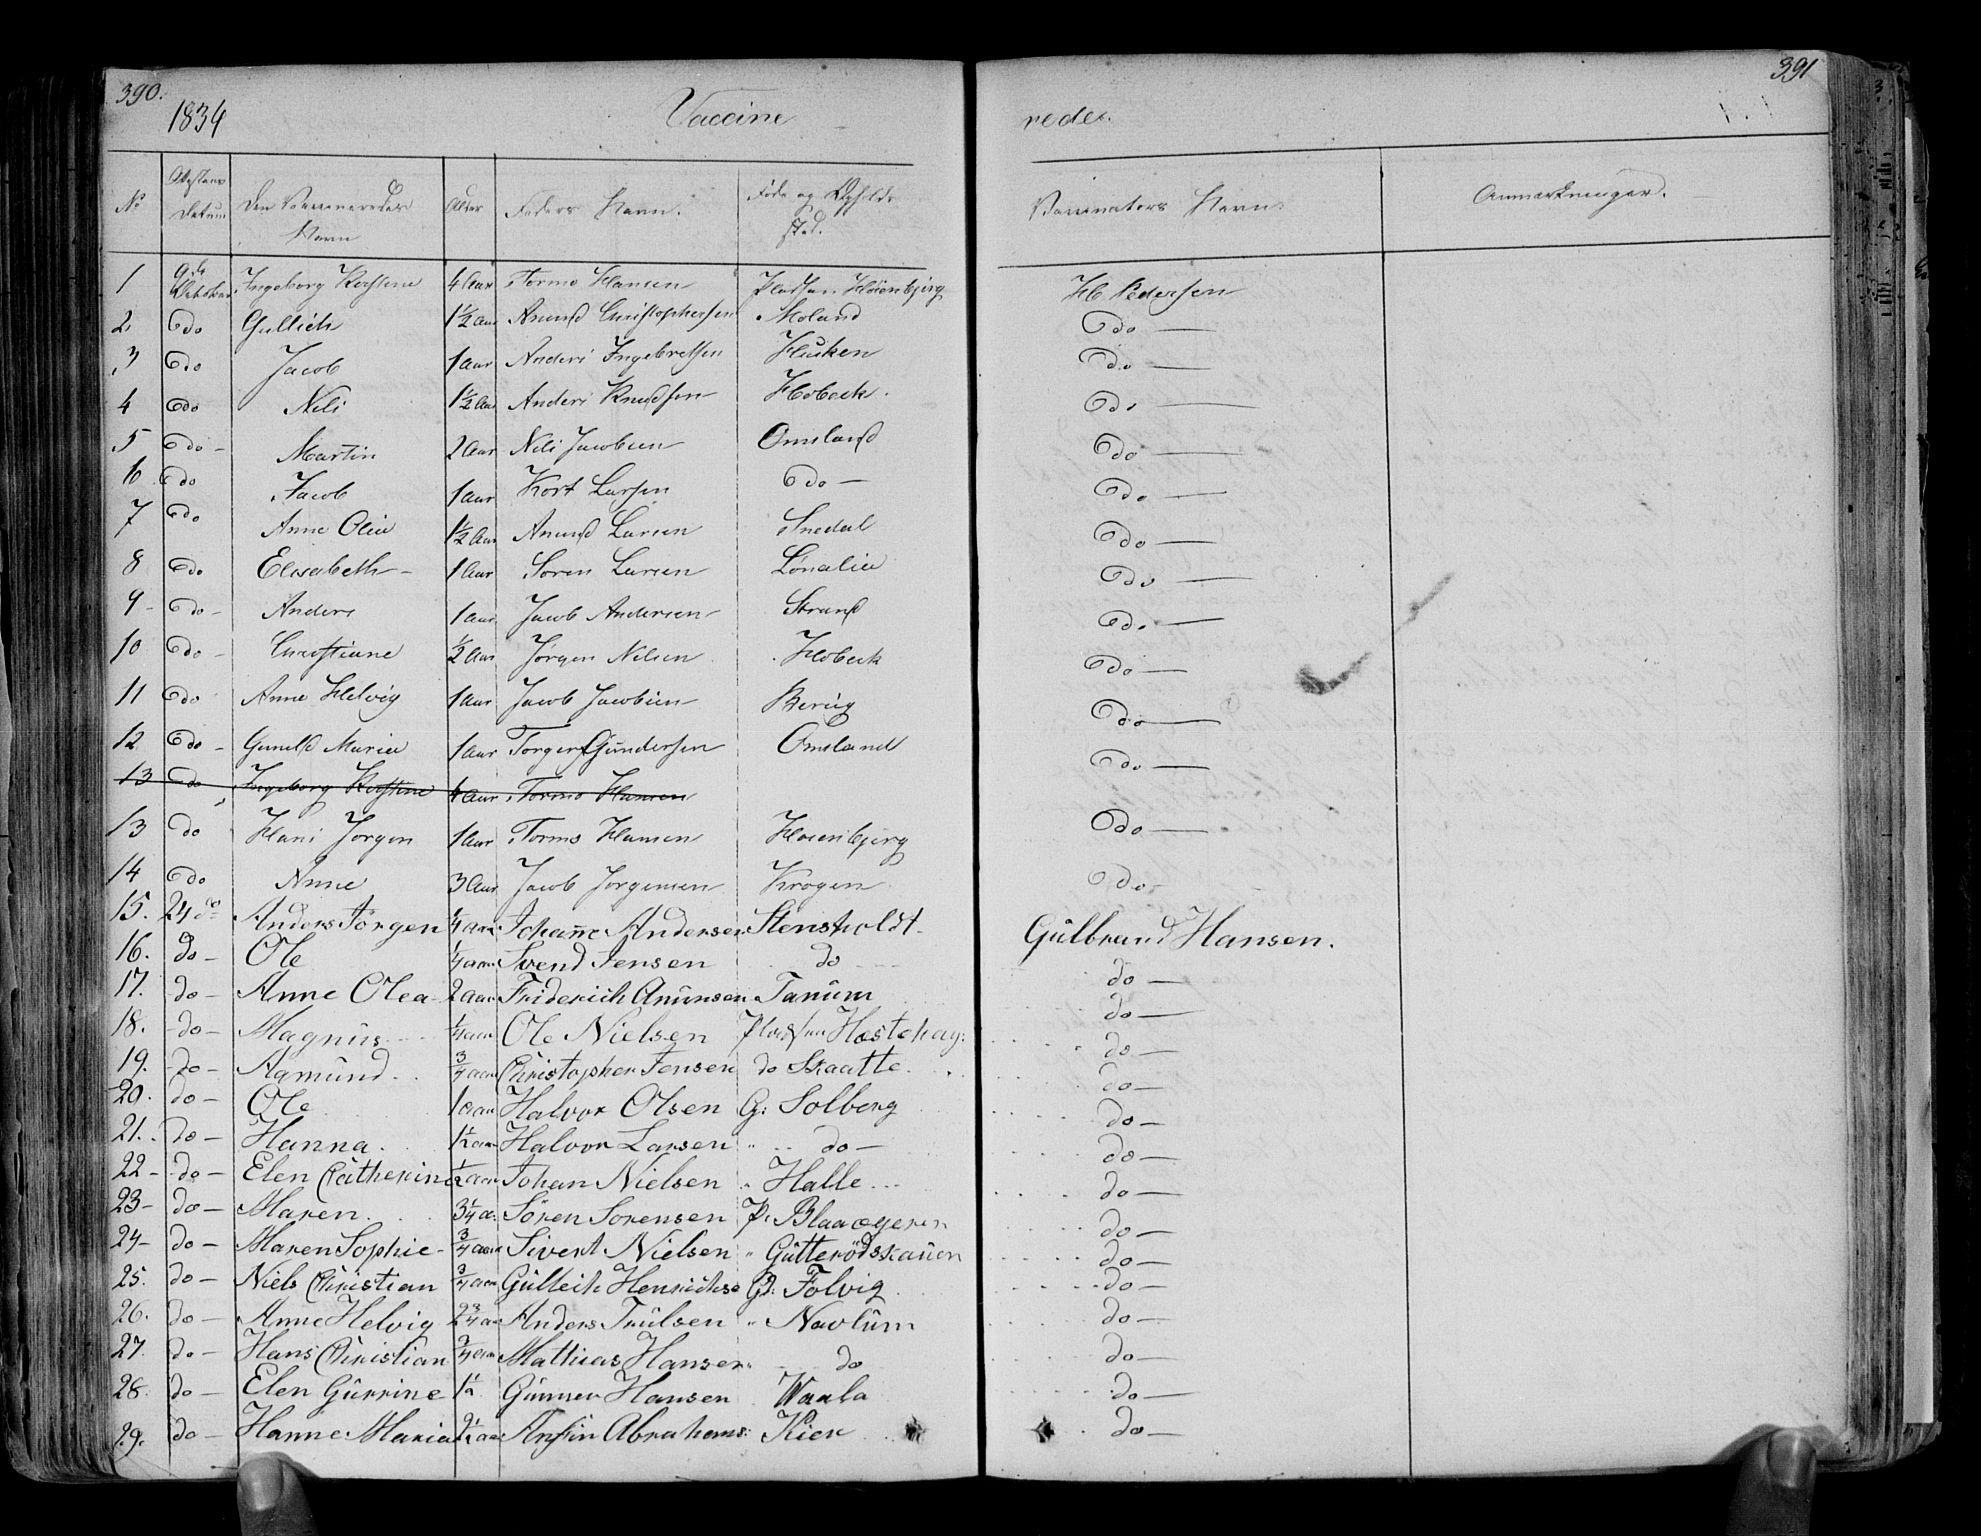 390.
391
1834 Vaccine reder.
No Attestens Datum Den Vaccineredes Navn Alder Faders Navn. Føde og Opholds sted. Vaccinators Navn. Anmærkninger.
1 9de Ingeborg Kirstine 4 Aar Tormo Hansen Pladsen Höienbjerg H. Pedersen
2 do Gullich 1½ Aar Amund Christophersen Moland do
3 do Jacob 1 aar Anders Ingebretsen Husken do
4 do Nils 1½ Aar Anders Knudsen Hobeck do
5 do Martin 2 Aar Nils Jacobsen Omsland do
6 do Jacob 1 aar Kort Larsen do do
7 do Anne Olea 1½ Aar Amund Larsen Snedal do
8 do Elisabeth 1 Aar Soren Larsen Lönalia do
9 do Anders 1 aar Jacob Andersen Strand do
10 do Christiane ½ Aar Jørgen Nilsen Hobeck do
11 do Anne Helvig 1 Aar Jacob Jacobsen Berüg do
12 do Gunild Maria 1 aar Torger Gundersen Omsland do
13 do Ingeborg Kirstine 4 Aar Tormo Hansen
13 do Hans Jörgen 1 Aar Tormo Hansen Hoienbjerg do
14 do Anne 3 Aar Jacob Jorgensen Krogen do
15. 24 do Anders Jörgen ¼ aar Johanne Andersen Stensholdt Gülbrand Hansen.
16. do Ole ¼ aar Svend Jensen do do
17. do Anne Olea 2 aar Friderich Anunsen Tanüm do
18. do Magnüs ¼ aar Ole Nielsen Pladsen Hestehag: do
19. do Aamünd ¾ aar Christopher Jensen do Skaatte do
20. do Ole 1 aar Halvor Olsen G: Solberg do
21. do Hanna 1½ aar Halvor Larsen do do
22 do Elen Catherine ½ aar Johan Nielsen Halle do
23 do Maren 3¼ a: Sören Sorensen P: Blaaogeren do
24 do Maren Sophie ¾ aar Sivert Nielsen Gütterödskaüen do
25. do Niels Christian ¾ aar Gülleik Henrichse Gd: Folvig do
26. do Anne Helvig 2¾ aar Anders Trülsen Navlüm do
27. do Hans Christian ¾ aar Mathias Hansen do do
28. do Elen Gürrine 1½ Günner Hansen Waala do
29. do Hanne Maria 2½ aar Anfin Abrahams: Kier do